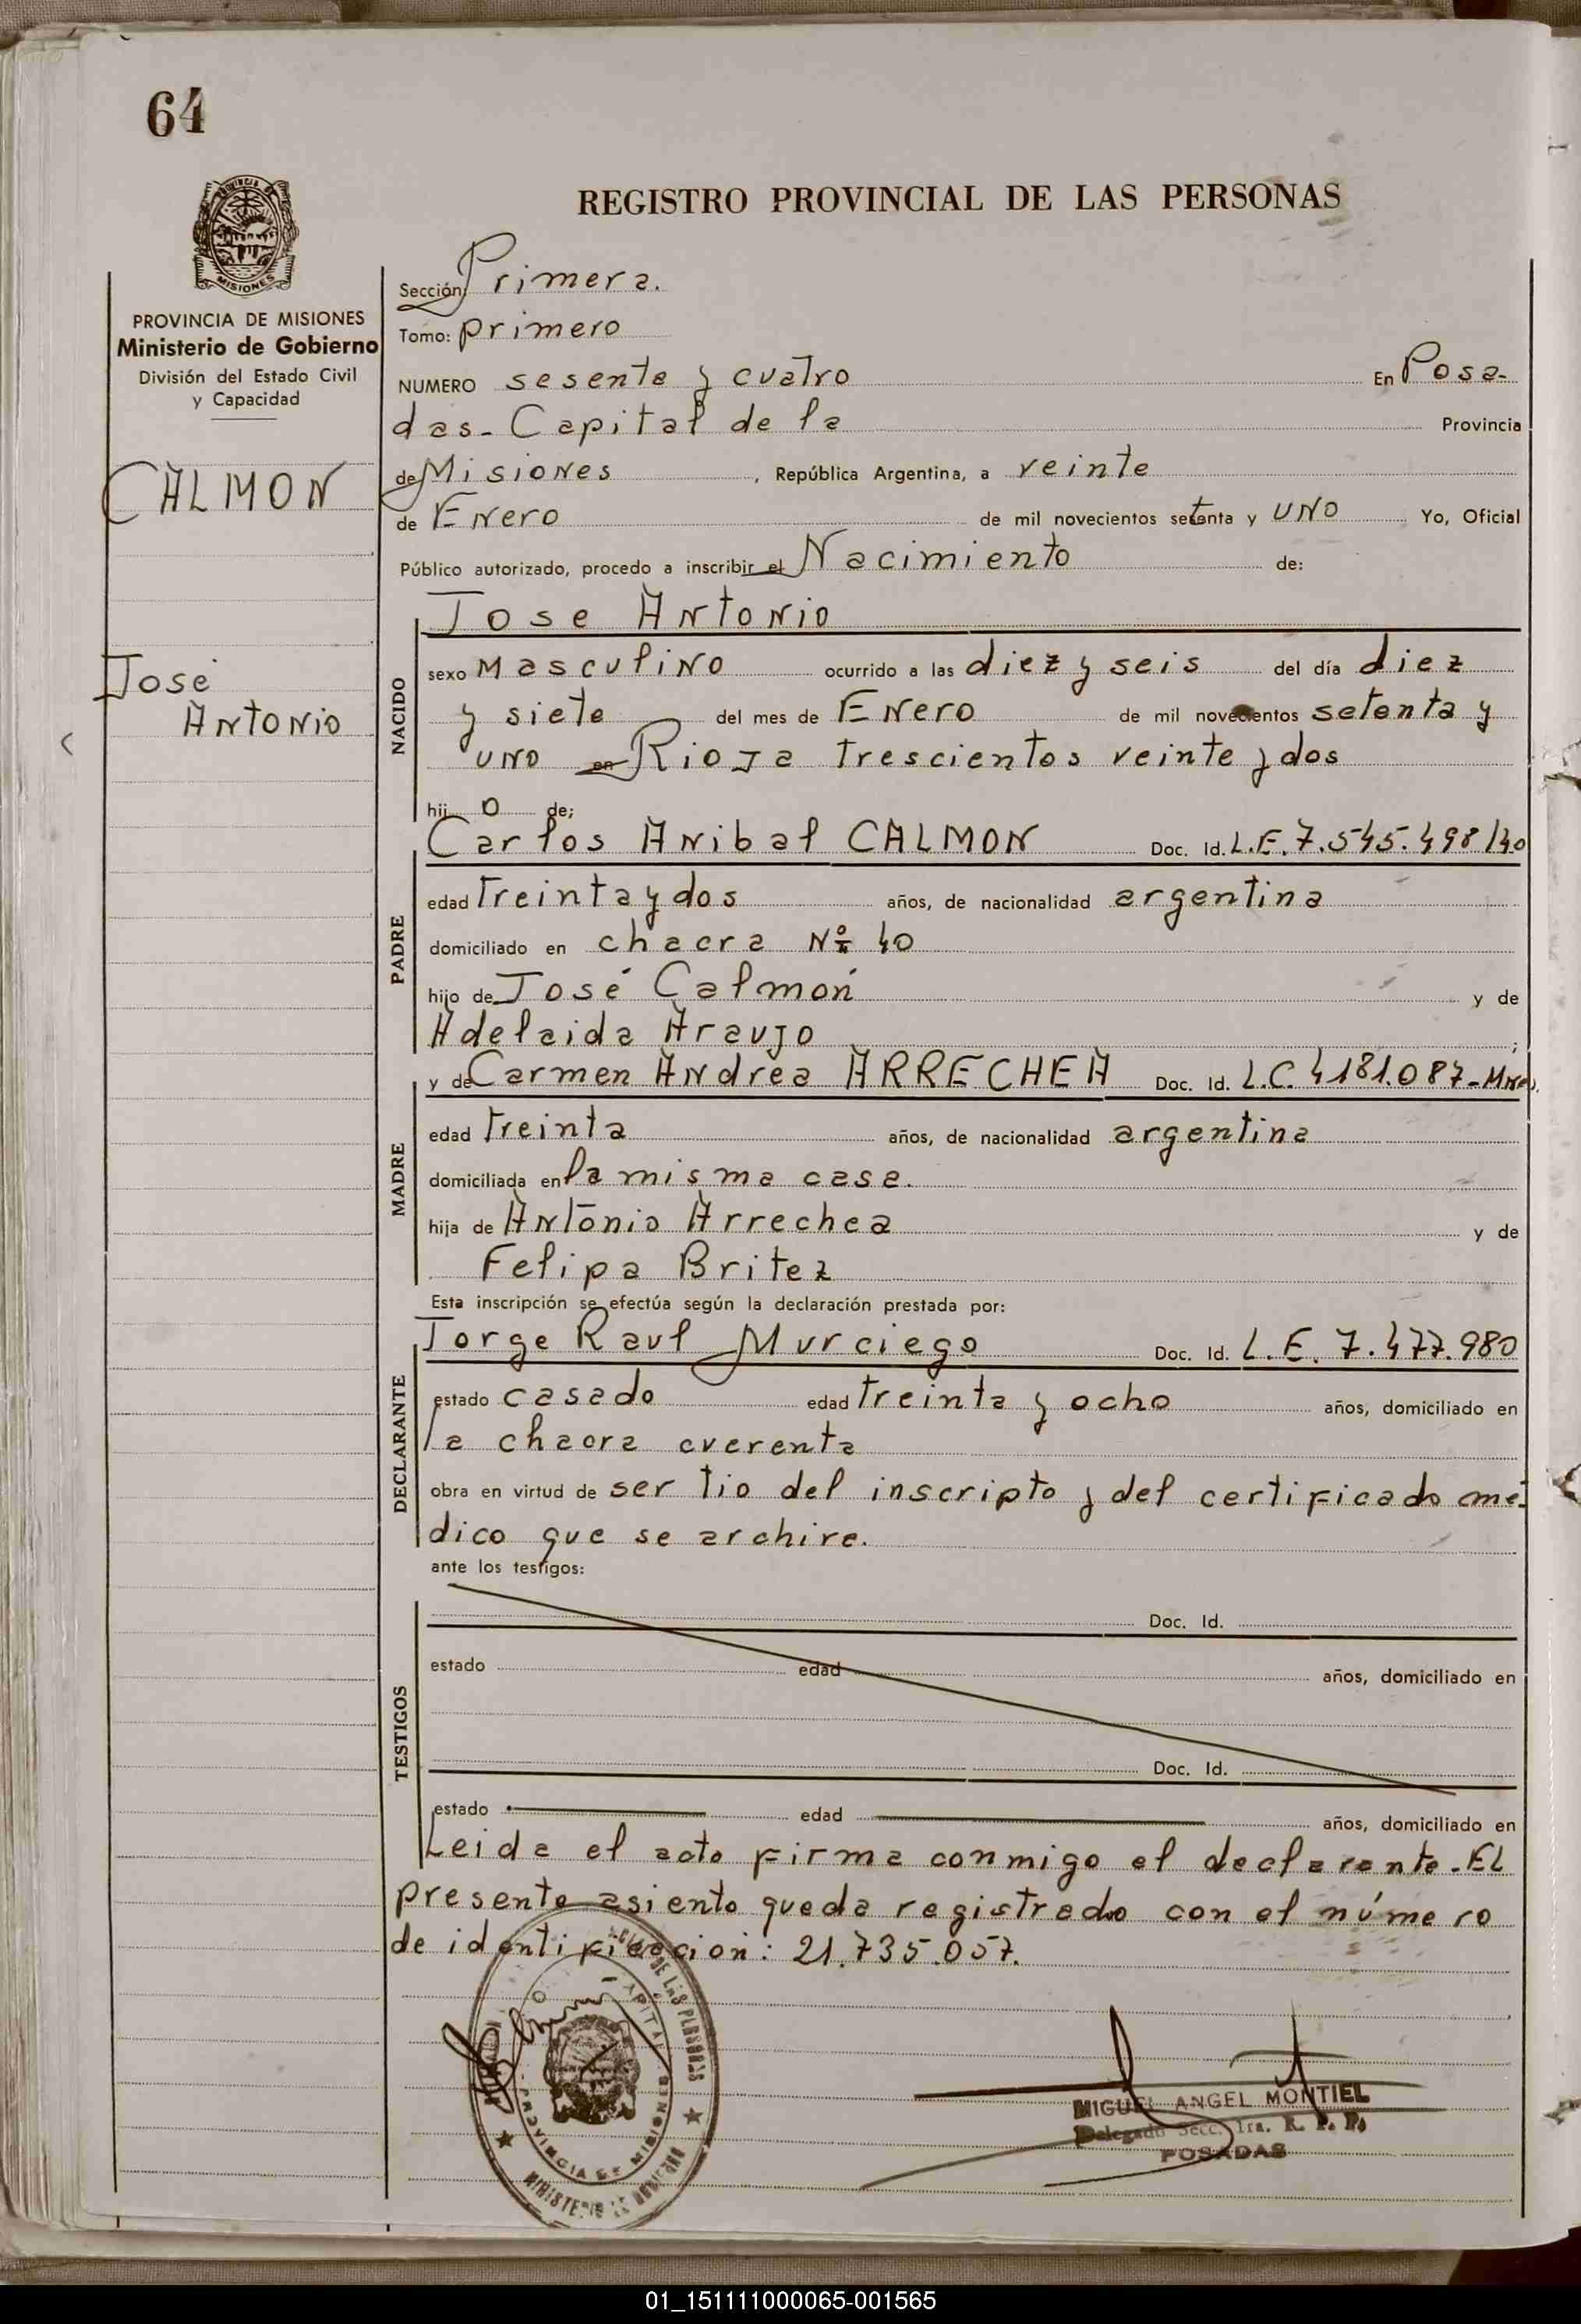 64
REGISTRO PROVINCIAL DE LAS PERSONAS
MISIONES
PROVINCIA DE MISIONES
Ministerio de Gobierno
División del Estado Civil
y Capacidad
CALMON
José
Antonio
Sección: Primera.
Tomo: primero
NUMERO sesenta y cuatro En Posa-
das - Capital de la Provincia
de Misiones, República Argentina, a veinte
de Enero de mil novecientos setenta y uno Yo, Oficial
Público autorizado, procedo a inscribir el Nacimiento de:
NACIDO
Jose Antonio
sexo masculino ocurrido a las diez y seis del día diez
y siete del mes de Enero de mil novecientos setenta y
uno en Rioja trescientos veinte y dos
hij o de;
PADRE
Carlos Anibal CALMON Doc. Id. L.E. 7.545.498/40
edad treinta y dos años, de nacionalidad argentina
domiciliado en chacra Nº 40
hijo de José Calmón y de
Adelaida Araujo ;
MADRE
y de Carmen Andrea ARRECHEA Doc. Id. L.C. 4181.087 - Mnes.
edad treinta años, de nacionalidad argentina
domiciliada en la misma casa.
hija de Antonio Arrechea y de
Felipa Britez
Esta inscripción se efectúa según la declaración prestada por:
DECLARANTE
Jorge Raul Murciego Doc. Id. L.E. 7.477.980
estado casado edad treinta y ocho años, domiciliado en
la chacra cuarenta
obra en virtud de ser tio del inscripto y del certificado mé-
dico que se archiva.
ante los testigos:
TESTIGOS
Doc. Id.
estado edad años, domiciliado en
Doc. Id.
estado edad años, domiciliado en
Leida el acta firma conmigo el declarante. EL
presente asiento queda registrado con el número
de identificacion: 21.735.057.
DE LAS PERSONAS
CAPITAL
PROVINCIA DE MISIONES
MINISTERIO DE GOBIERNO
MIGUEL ANGEL MONTIEL
Delegado Secc. 1ra. R. P. P.
POSADAS
01_151111000065-001565